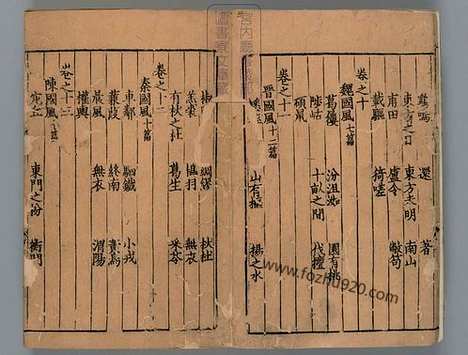 鷄鳴 還 著
東方之日 東方未明 南山
甫田 盧令 敝笱
載驅 猗嗟
卷之十
魏國風七篇
葛屨 汾沮洳 園有桃
陟岵 十畝之間 伐檀
碩鼠
卷之十一
晉國風十二篇
山有樞 揚之水
綢繆 杕杜
羔裘 鴇羽 無衣
有杕之杜 葛生 采苓
卷之十二
秦國風十篇
車鄰 駟鐵 小戎
蒹葭 終南 黃鳥
晨風 無衣 渭陽
權輿
卷之十三
陳國風十篇
宛丘 東門之枌 衡門
www.fozhu920.com